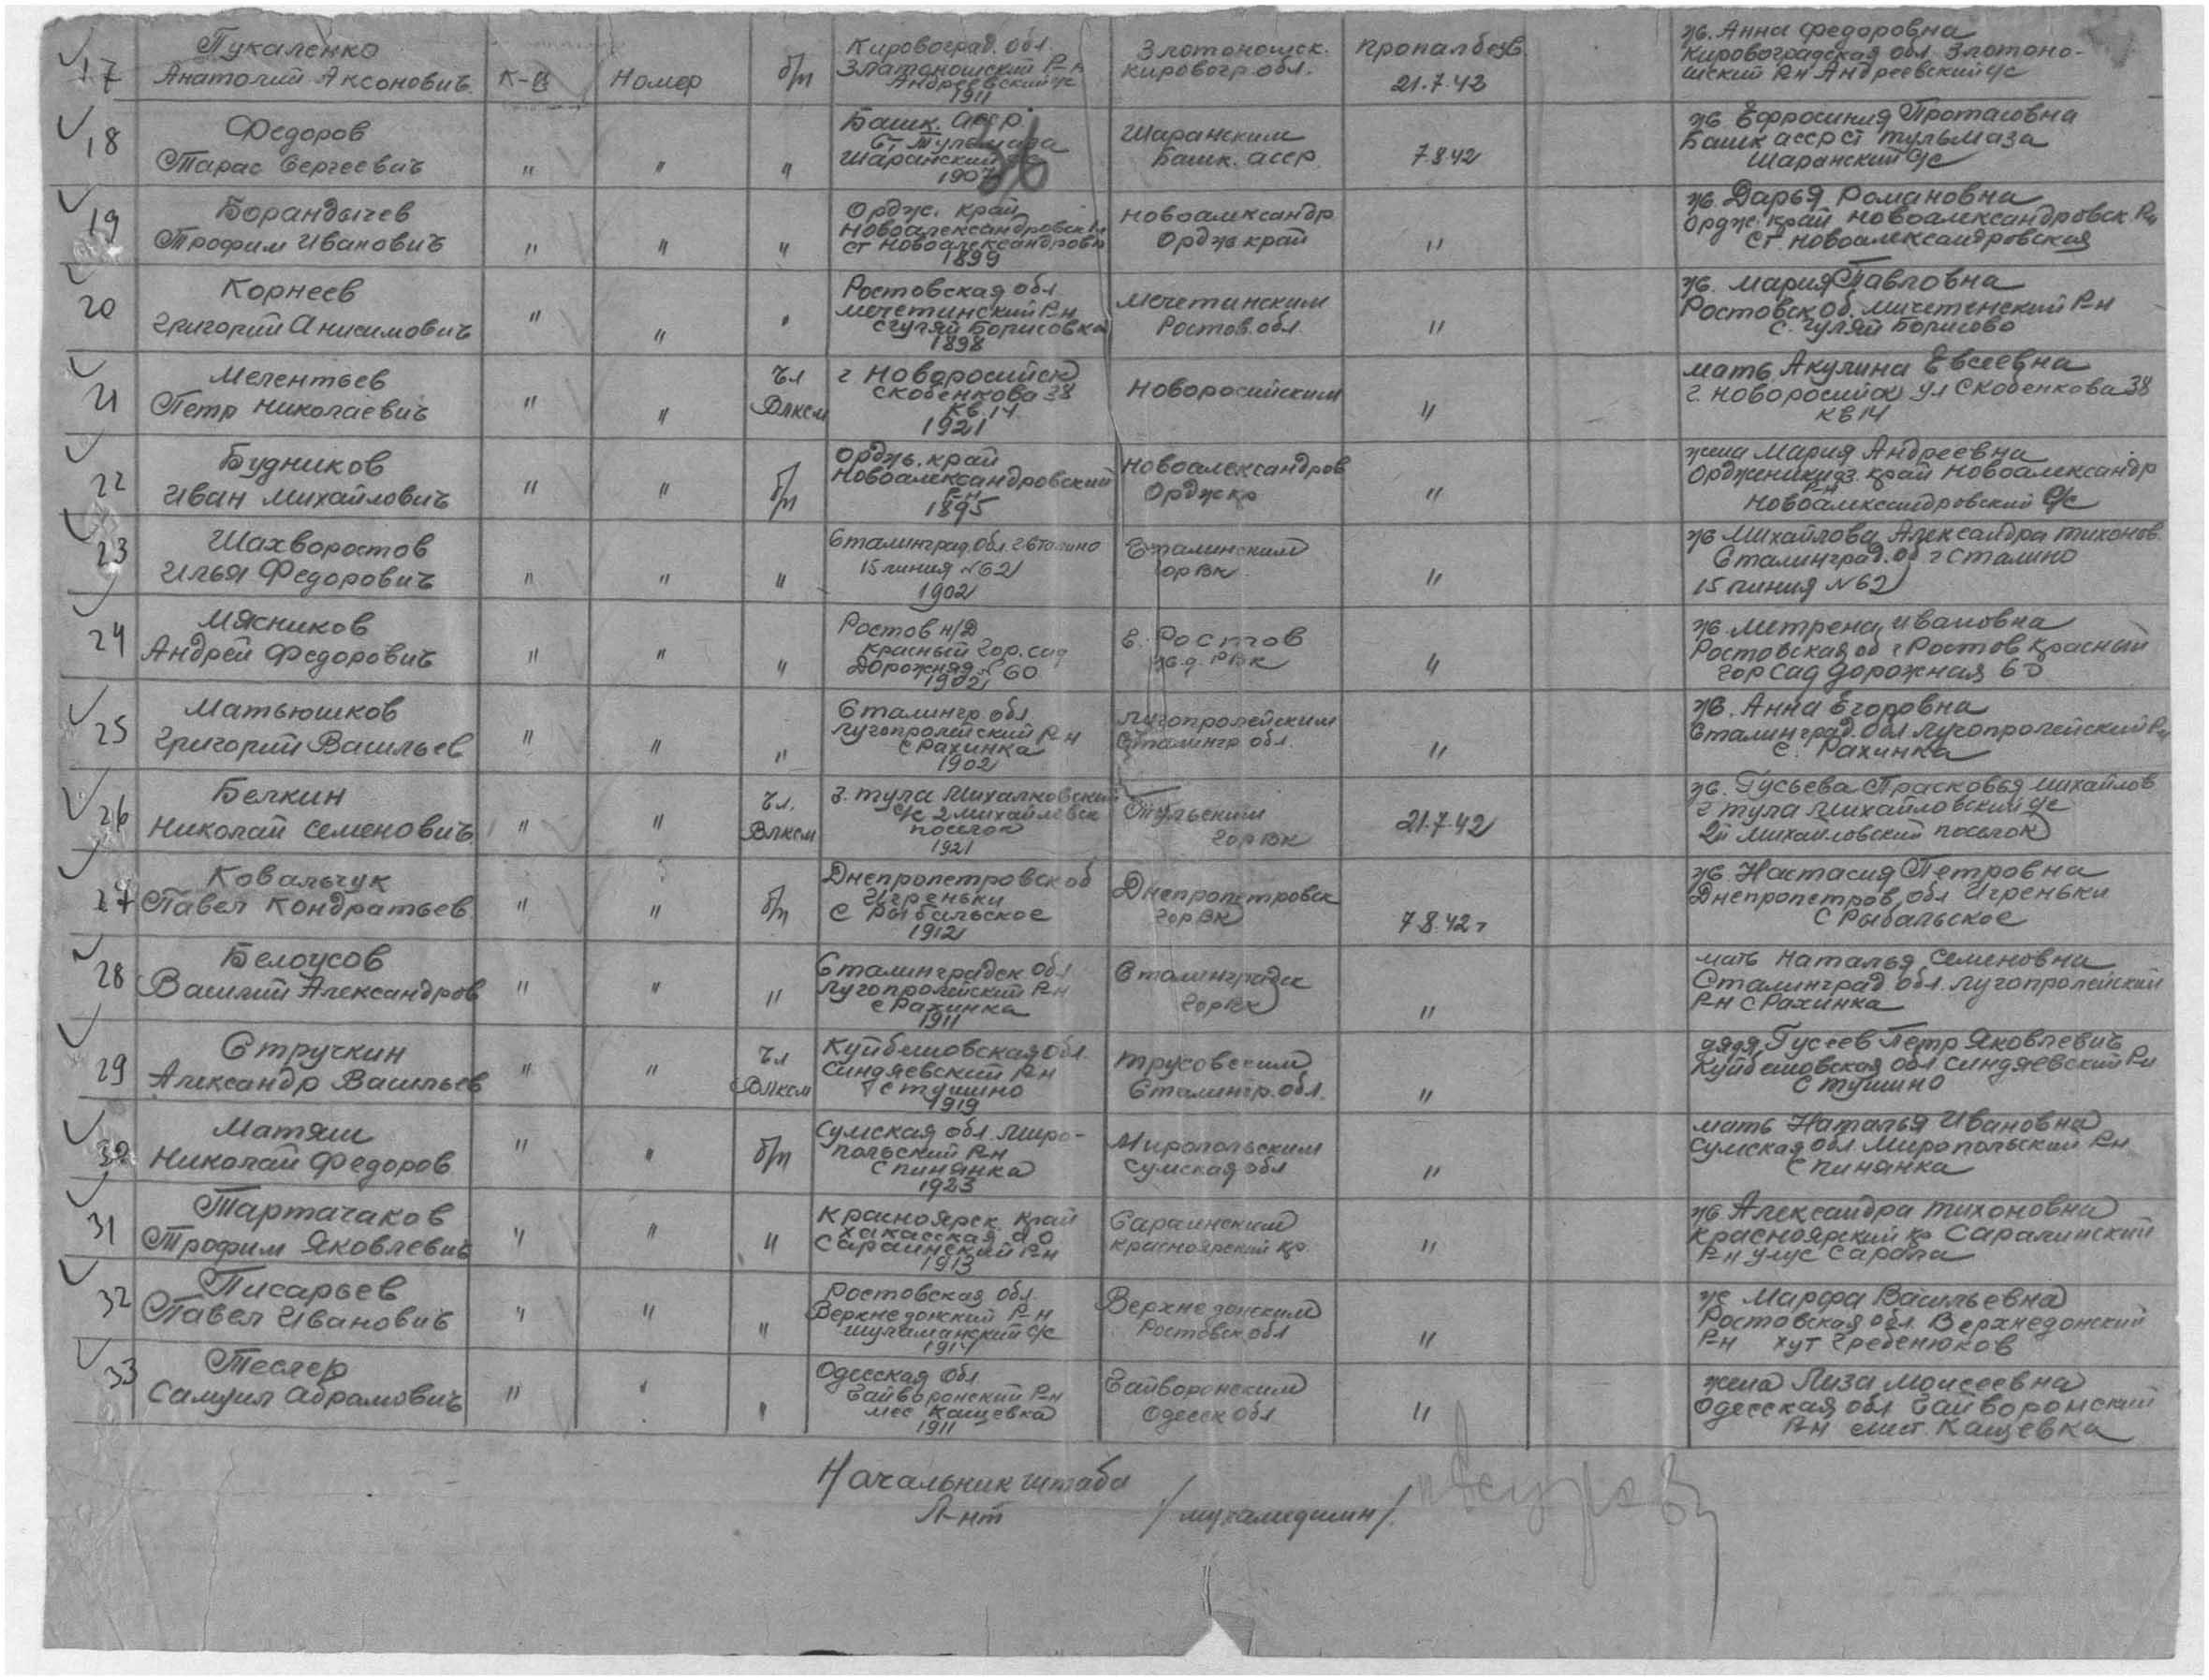 17
Пукаленко
Анатолий Аксонович
К-ц
Номер
б/п
Кировоград. обл.
Златоношский Р-н
Андреевский с/с
1911
Златоношск.
Кировогр. обл.
пропал без в.
21.7.42
ж. Анна Федоровна
Кировоградская обл. Златоно-
шский Р-н Андреевский с/с
18
Федоров
Тарас Сергеевич
" " "
Башк. асср
Ст. Тульмаза
Шаранский с/с
1907
36
Шаранским
Башк. асср
7.8.42
ж Ефросиния Протасовна
Башк асср ст Тульмаза
Шаранский с/с
19
Борандычев
Трофим Иванович
" " "
Ордж. край
Новоалександровск Р-н
ст Новоалександровк
1899
Новоалександр
Ордж край
"
ж. Дарья Романовна
Ордж. край Новоалександровск. Р-н
ст. Новоалександровская
20
Корнеев
Григорий Анисимович
" " "
Ростовская обл
Мечетинский Р-н
с Гуляй Борисовка
1898
Мечетинским
Ростов. обл.
"
ж. Мария Павловна
Ростовск об. Мичетенский Р-н
с. Гуляй Борисово
21
Мелентьев
Петр Николаевич
" "
Чл
Влксм
г Новоросийск
Скобенкова 38
Кв. 14
1921
Новоросийским
"
мать Акулина Евсеевна
г. Новоросийск ул Скобенкова 38
кв 14
22
Будников
Иван Михайлович
" "
б/п
Ордж. край
Новоалександровский
Р-н
1895
Новоалександров
Ордж кр
"
жена Мария Андреевна
Орджникидз. край Новоалександр
Р-н
Новоалександровский с/с
23
Шахворостов
Илья Федорович
" " "
Сталинград. Обл. г Сталино
15 линия №62
1902
Сталинским
горВк
"
ж Михайлова Александра Тихонов.
Сталинград. об г Сталино
15 линия №62
24
Мясников
Андрей Федорович
" " "
Ростов н/Д
Красный Гор. сад
Дорожная № 60
1902
г. Ростов
ж.д. РВк
"
ж. Метрена Ивановна
Ростовская об г Ростов Красный
Гор Сад Дорожная 60
25
Матьюшков
Григорий Васильев
" " "
Сталингр обл
Лугопролейский Р-н
с Рахинка
1902
Лугопролейским
Сталингр обл.
"
ж. Анна Егоровна
Сталинград. обл Лугопролейский Р-н
с. Рахинка
26
Белкин
Николай Семенович
" "
Чл.
Влксм
г. Тула Михалковский
с/с 2 Михайловск
поселок
1921
Тульским
горВк
21.7.42
ж. Гусьева Прасковья Михайлов
г Тула Михайловский с/с
2й Михайловский поселок
27
Ковальчук
Павел Кондратьев
" "
б/п
Днепропетровск об
Игреньки
с Рыбальское
1912
Днепропетровск
горВк
7.8.42 г
ж. Настасия Петровна
Днепропетров. обл Игреньки
с Рыбальское
28
Белоусов
Василий Александров
" " "
Сталинградск Обл
Лугопролейский Р-н
с Рахинка
1911
Сталинградск
горВк
"
мать Наталья Семеновна
Сталинград обл. Лугопролейский
Р-н с Рахинка
29
Стручкин
Александр Васильев
" "
Чл
Влксм
Куйбешовская Обл.
Синдяевский Р-н
с Тушино
1919
Трусовским
Сталингр. обл.
"
дядя Гусеев Петр Яковлевич
Куйбешовская обл Синдяевский Р-н
с Тушино
30
Матяш
Николай Федоров
" "
б/п
Сумская обл. Миро-
польский Р-н
с пинянка
1923
Миропольским
Сумская обл
"
мать Наталья Ивановна
Сумская обл Миропольский Р-н
с пинянка
31
Тартачаков
Трофим Яковлевич
" " "
Красноярск. край
Хакасская а о.
Сараинский Р-н
1913
Сараинским
Красноярский кр.
"
ж. Александра Тихоновна
Красноярский кр Саралинский
Р-н улус Сарала
32
Писарьев
Павел Иванович
" " "
Ростовская обл.
Верхнедонский Р-н
Шуламанский с/с
1914
Верхнедонским
Ростовск обл
"
ж Марфа Васильевна
Ростовская обл. Верхнедонский
Р-н хут Гребенюков
33
Теслер
Самуил Абрамович
" " "
Одесская обл
Гайворонский Р-н
мес Кащевка
1911
Гайворонским
Одесск обл
"
жена Лиза Моисеевна
Одесская обл Гайворонский
Р-н мест. Кащевка
Начальник штаба
Л-нт
/Мухамедшин/